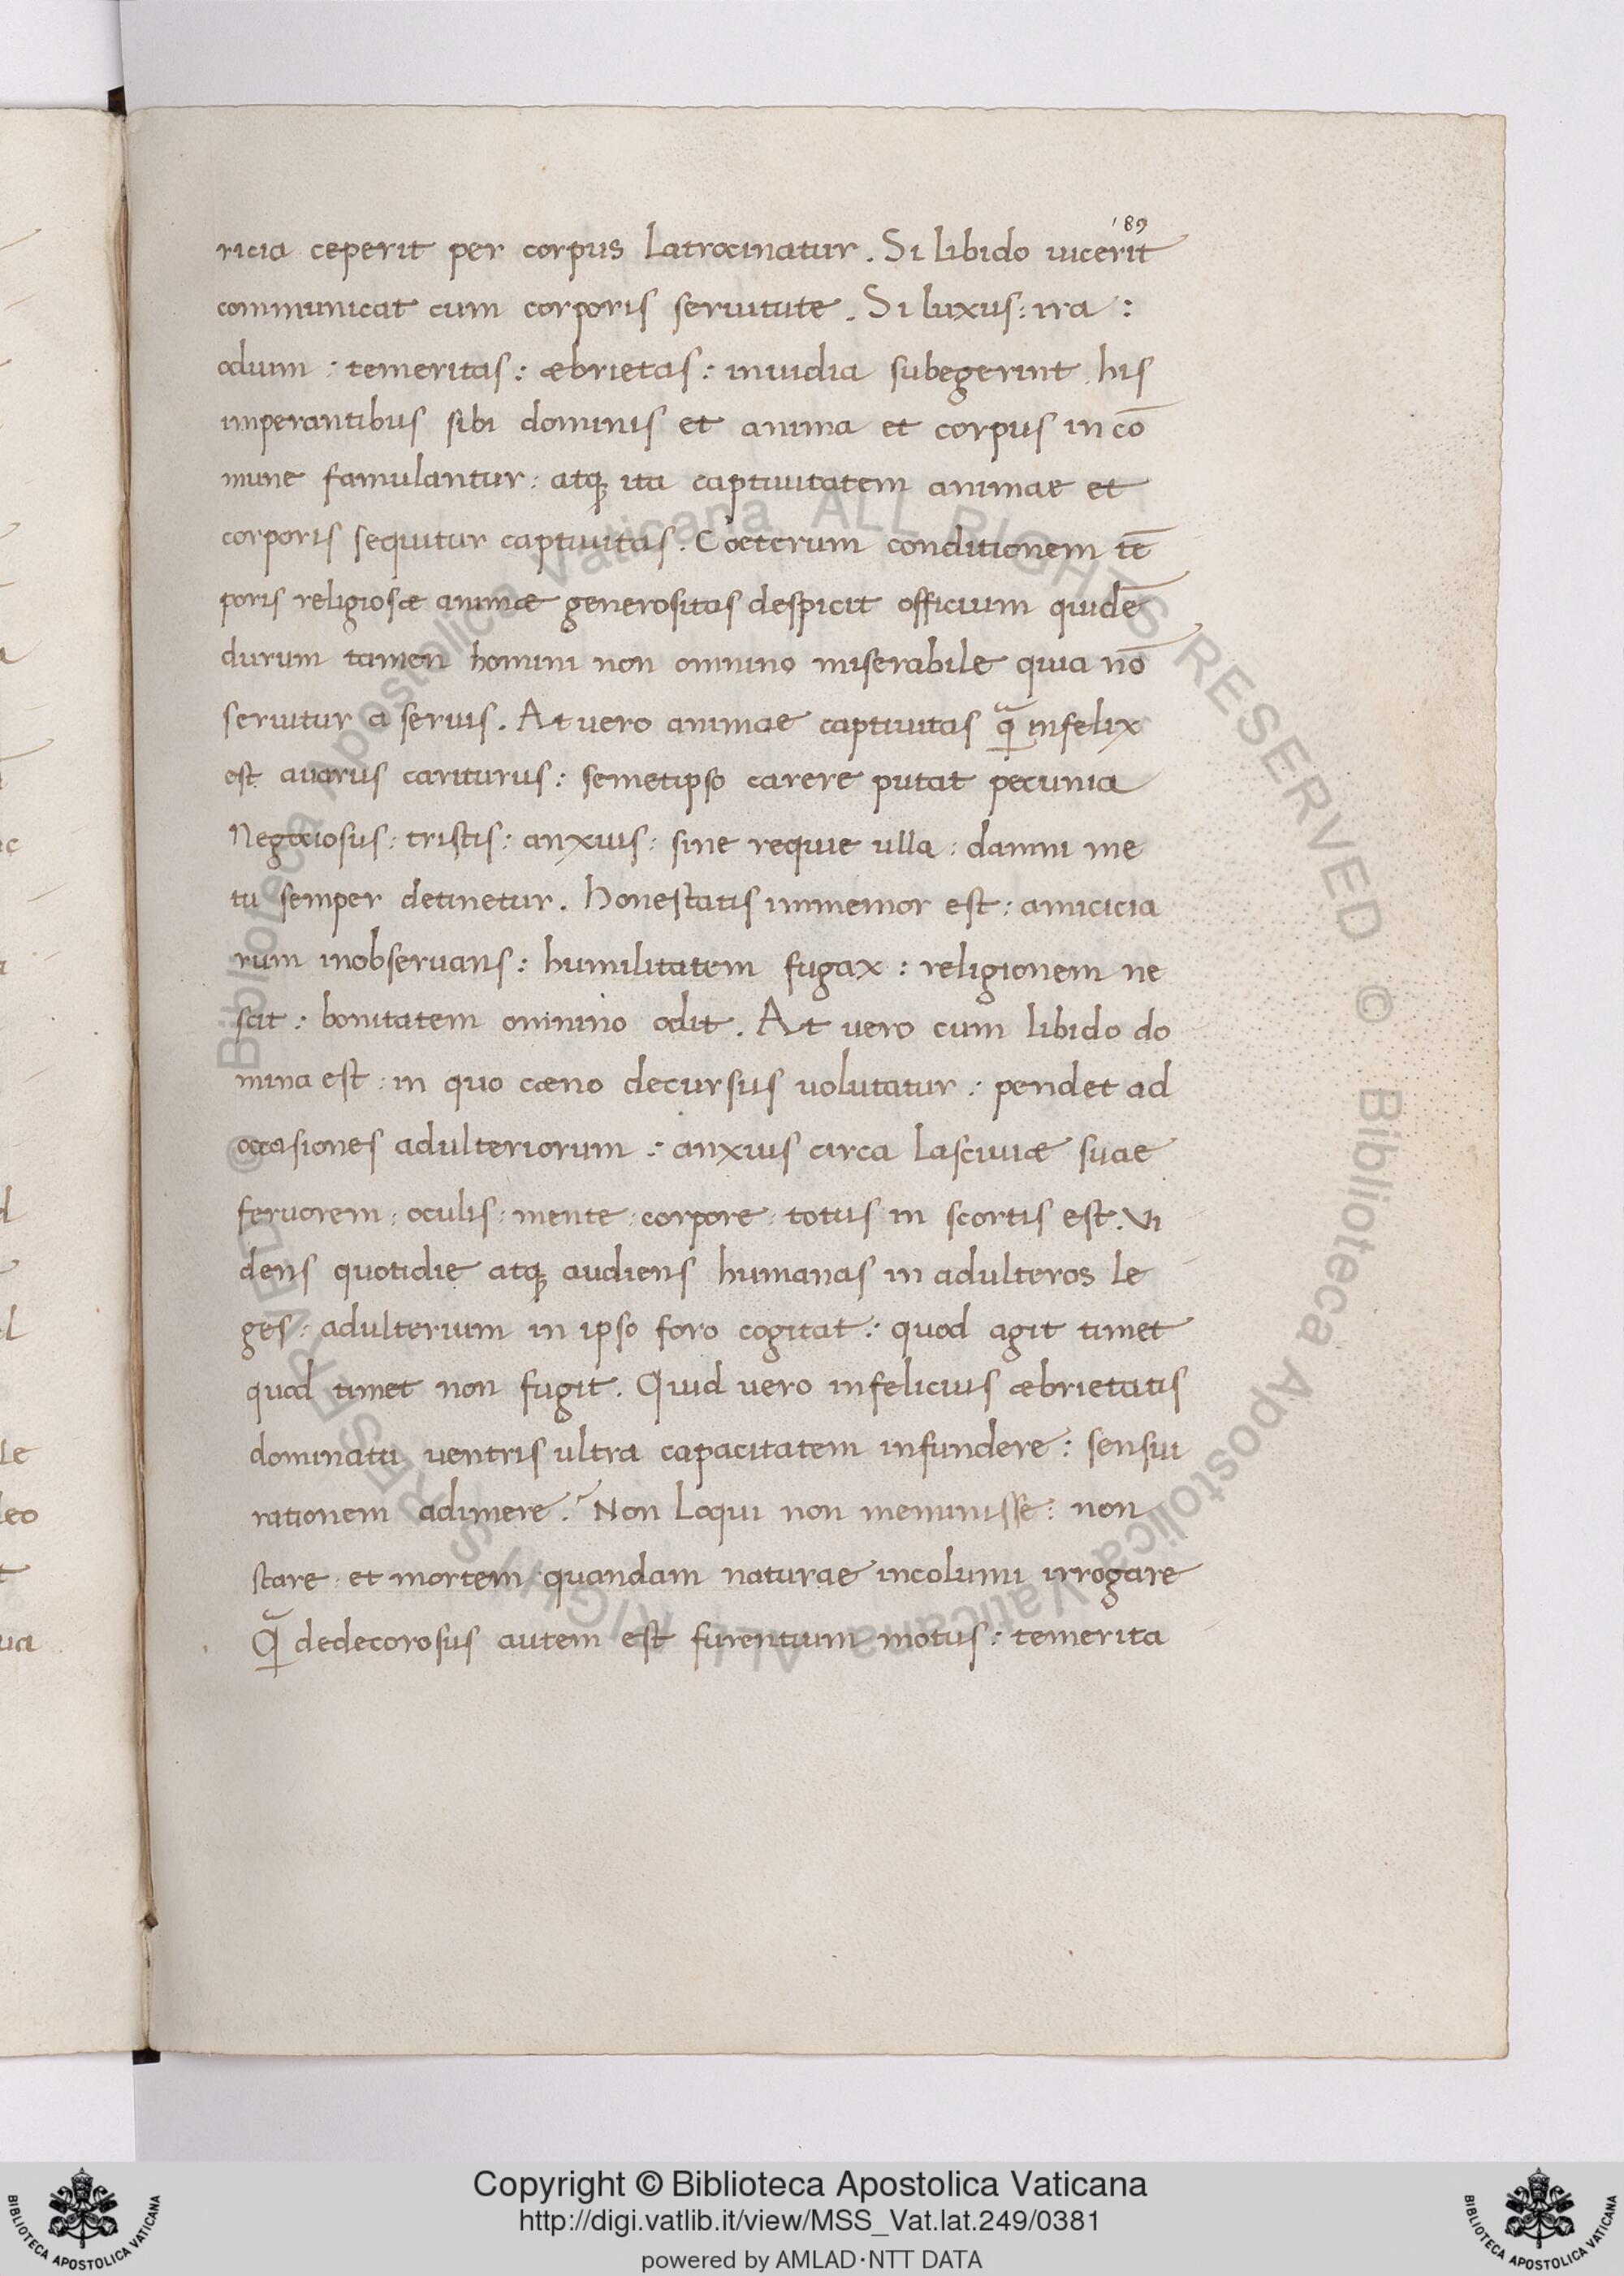 189
ricia ceperit per corpus latrocinatur. Si libido uicerit
communicat cum corporis seruitute. Si luxus: ira:
odium: temeritas: æbrietas: inuidia subegerint his
imperantibus sibi dominis et anima et corpus in cō
mune famulantur: atq; ita captiuitatem animae et
corporis sequitur captiuitas. Cœterum conditionem tē
poris religiosæ animæ generositas despicit officium quidē
durum tamen homini non omnino miserabile quia nō
seruitur a seruis. At uero animae captiuitas q̄ infelix
est auarus cariturus: semetipso carere putat pecunia
Negociosus: tristis: anxius: sine requie ulla: damni me
tu semper detinetur. Honestatis immemor est: amicicia
rum inobseruans: humilitatem fugax: religionem ne
scit: bonitatem omnino odit. At uero cum libido do
mina est: in quo cæno decursus uolutatur: pendet ad
occasiones adulteriorum: anxius circa lasciuiæ suae
feruorem: oculis: mente: corpore: totus in scortis est. Vi
dens quotidie atq; audiens humanas in adulteros le
ges: adulterium in ipso foro cogitat: quod agit timet
quod timet non fugit. Quid uero infelicius æbrietatis
dominatu uentris ultra capacitatem infundere: sensui
rationem adimere? Non loqui non meminisse: non
stare: et mortem quandam naturae incolumi irrogare
Q̄ dedecorosus autem est furentium motus: temerita
Copyright © Biblioteca Apostolica Vaticana
http://digi.vatlib.it/view/MSS_Vat.lat.249/0381
powered by AMLAD·NTT DATA
BIBLIOTECA APOSTOLICA VATICANA
BIBLIOTECA APOSTOLICA VATICANA
© Biblioteca Apostolica Vaticana ALL RIGHTS RESERVED © Biblioteca Apostolica Vaticana ALL RIGHTS RESERVED